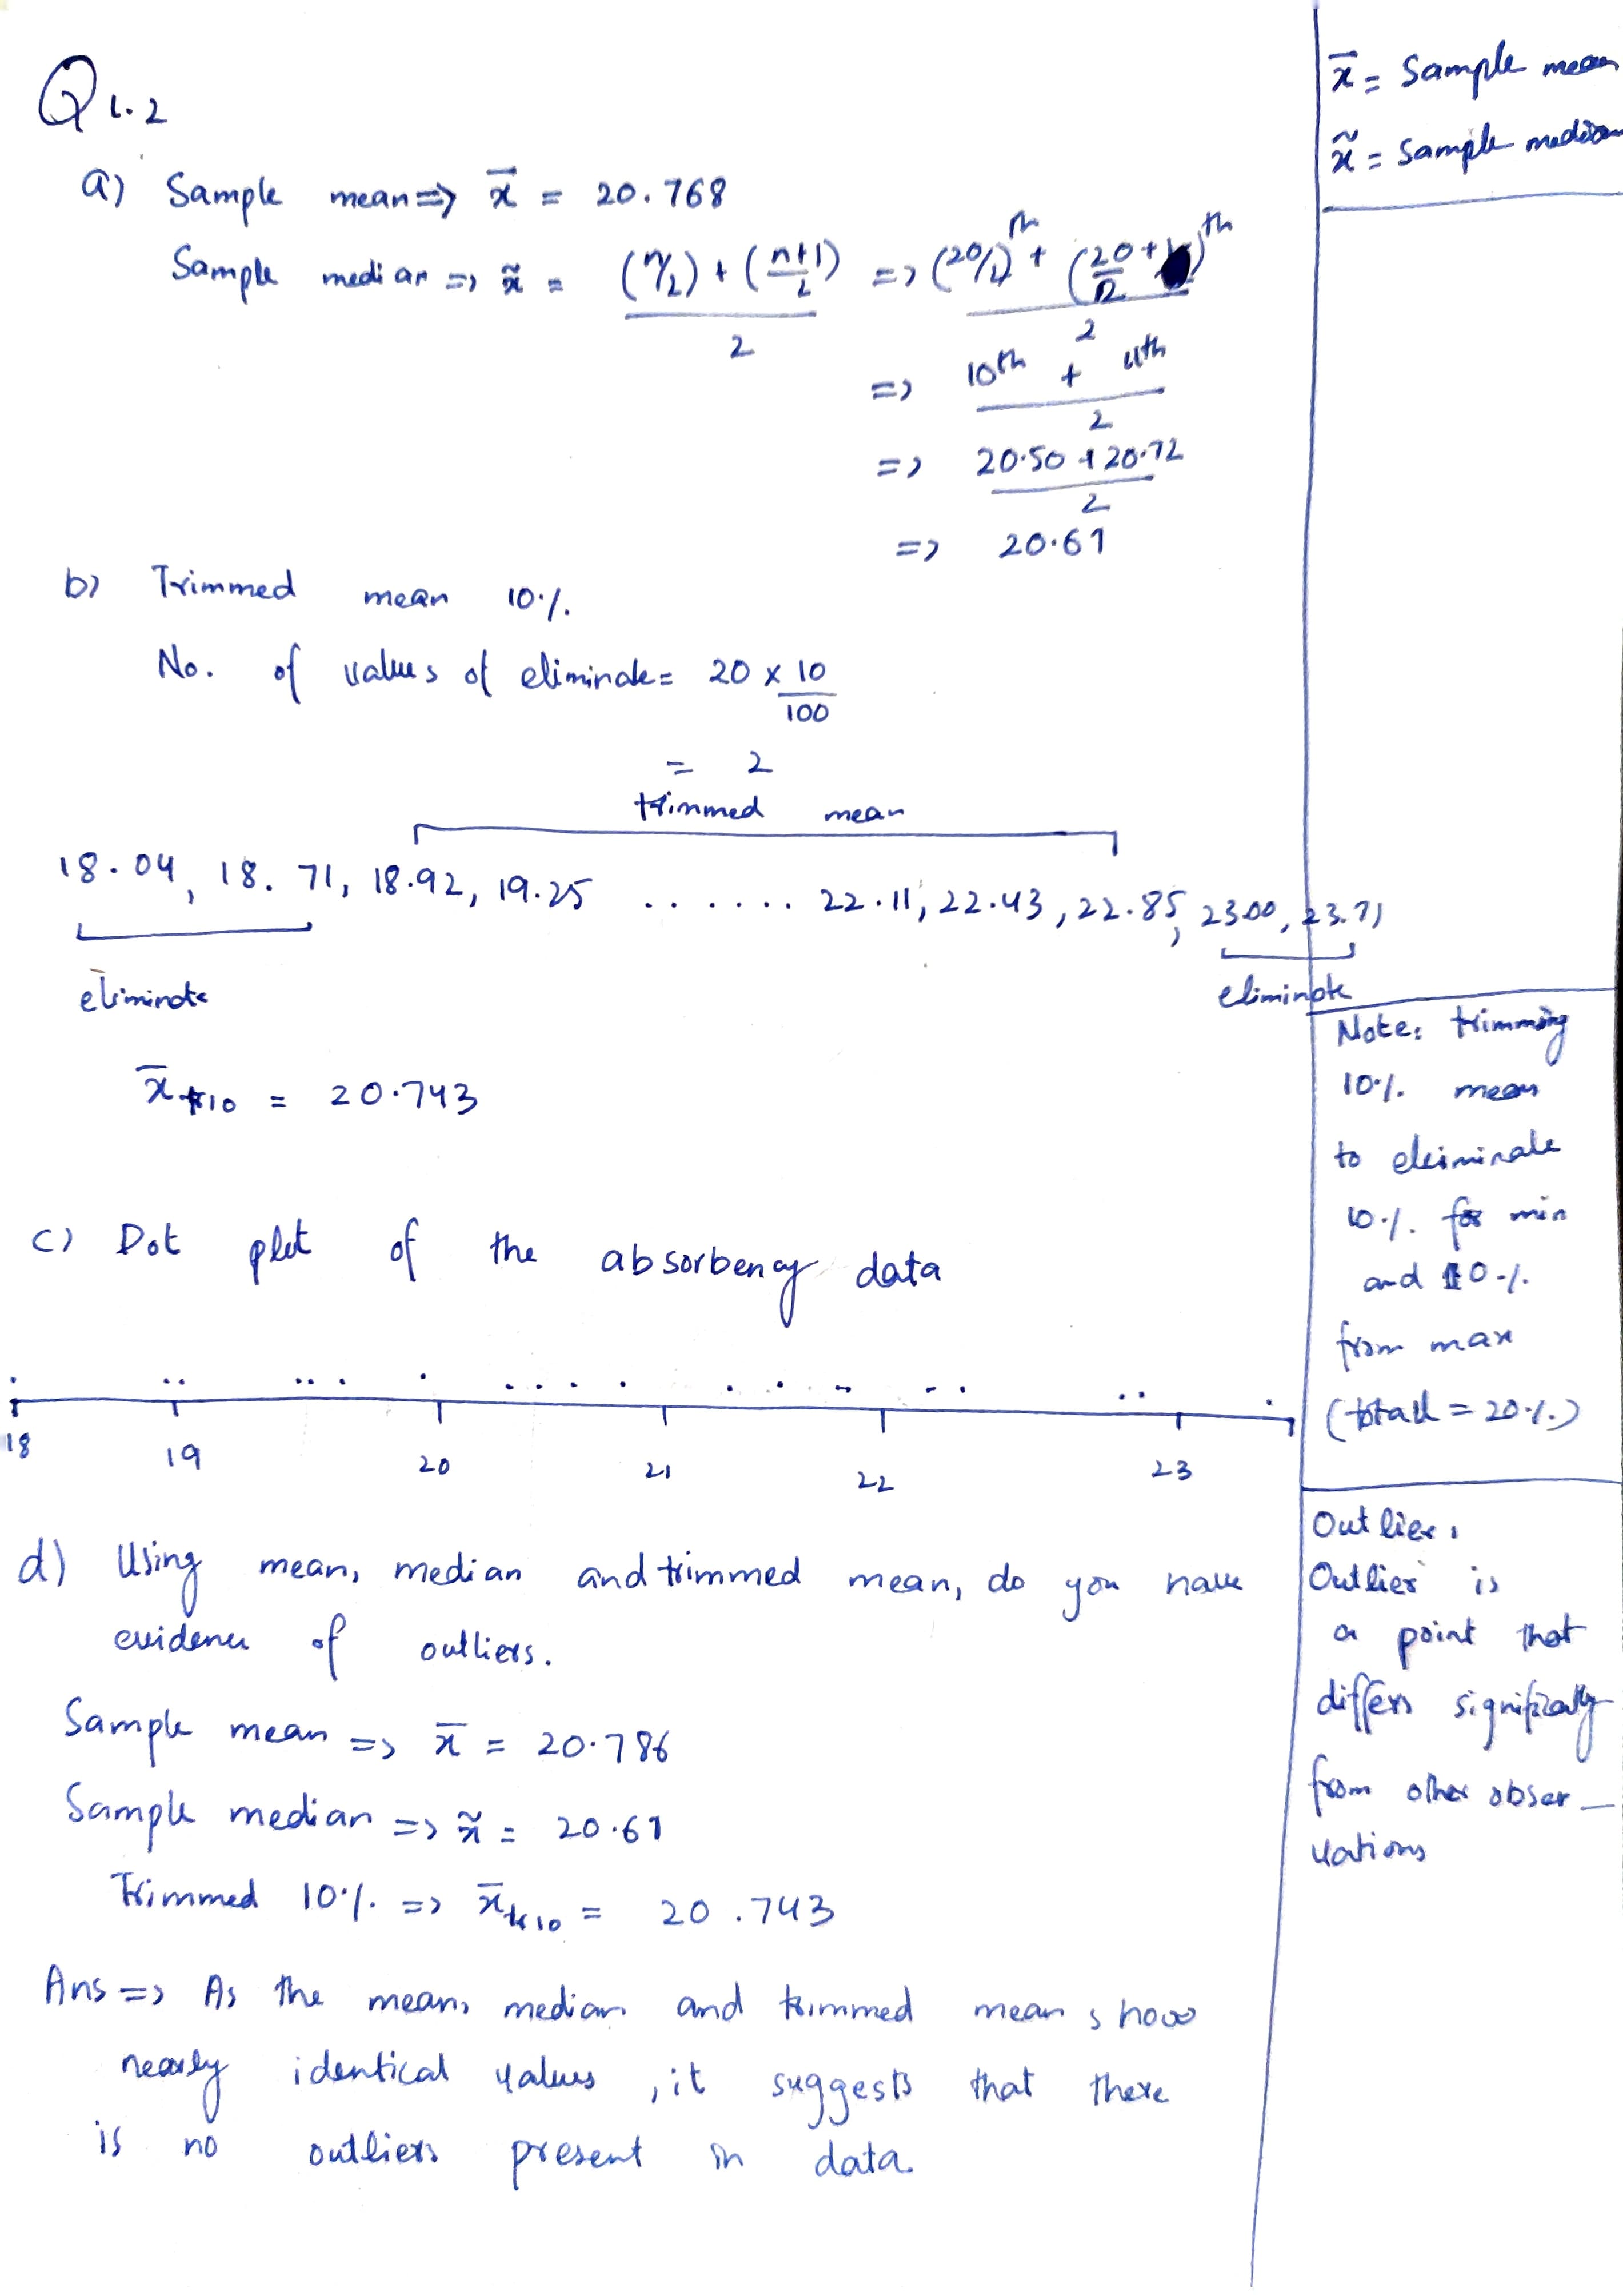 Q 1.2
a) Sample mean => x̄ = 20.768
Sample median => x̃ = (n/2) + (n+1/2) / 2 => (20/2)th + (20/2 + )th / 2
=> 10th + 11th / 2
=> 20.50 + 20.72 / 2
=> 20.61
b) Trimmed mean 10%
No. of values of eliminate = 20 x 10 / 100
= 2
trimmed mean
18.04, 18.71, 18.92, 19.25 ....... 22.11, 22.43, 22.85, 23.00, 23.71
eliminate eliminate
x̄ tr10 = 20.743
c) Dot plot of the absorbency data
18 19 20 21 22 23
d) Using mean, median and trimmed mean, do you have
evidence of outliers.
Sample mean => x̄ = 20.786
Sample median => x̃ = 20.61
Trimmed 10% => x̄ tr10 = 20.743
Ans => As the mean, median and trimmed mean show
nearly identical values, it suggests that there
is no outliers present in data.
x̄ = Sample mean
x̃ = Sample median
Note: trimming
10% mean
to eliminate
10% for min
and 10%
from max
(total = 20%)
Outlier:
Outlier is
a point that
differs
from other obser-
vations